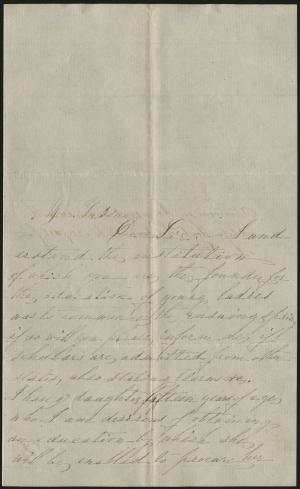 Dear Sir I und
erstand the institution
of which you are the founder for
the education of young ladies
was to commence the ensuing Spring
if so will you please inform me if
scholars are admitted from other
states, also stating terms &c.
I have a daughter fifteen years of age
who I am desirous of obtaining
an education by which she
will be enabled to procure her